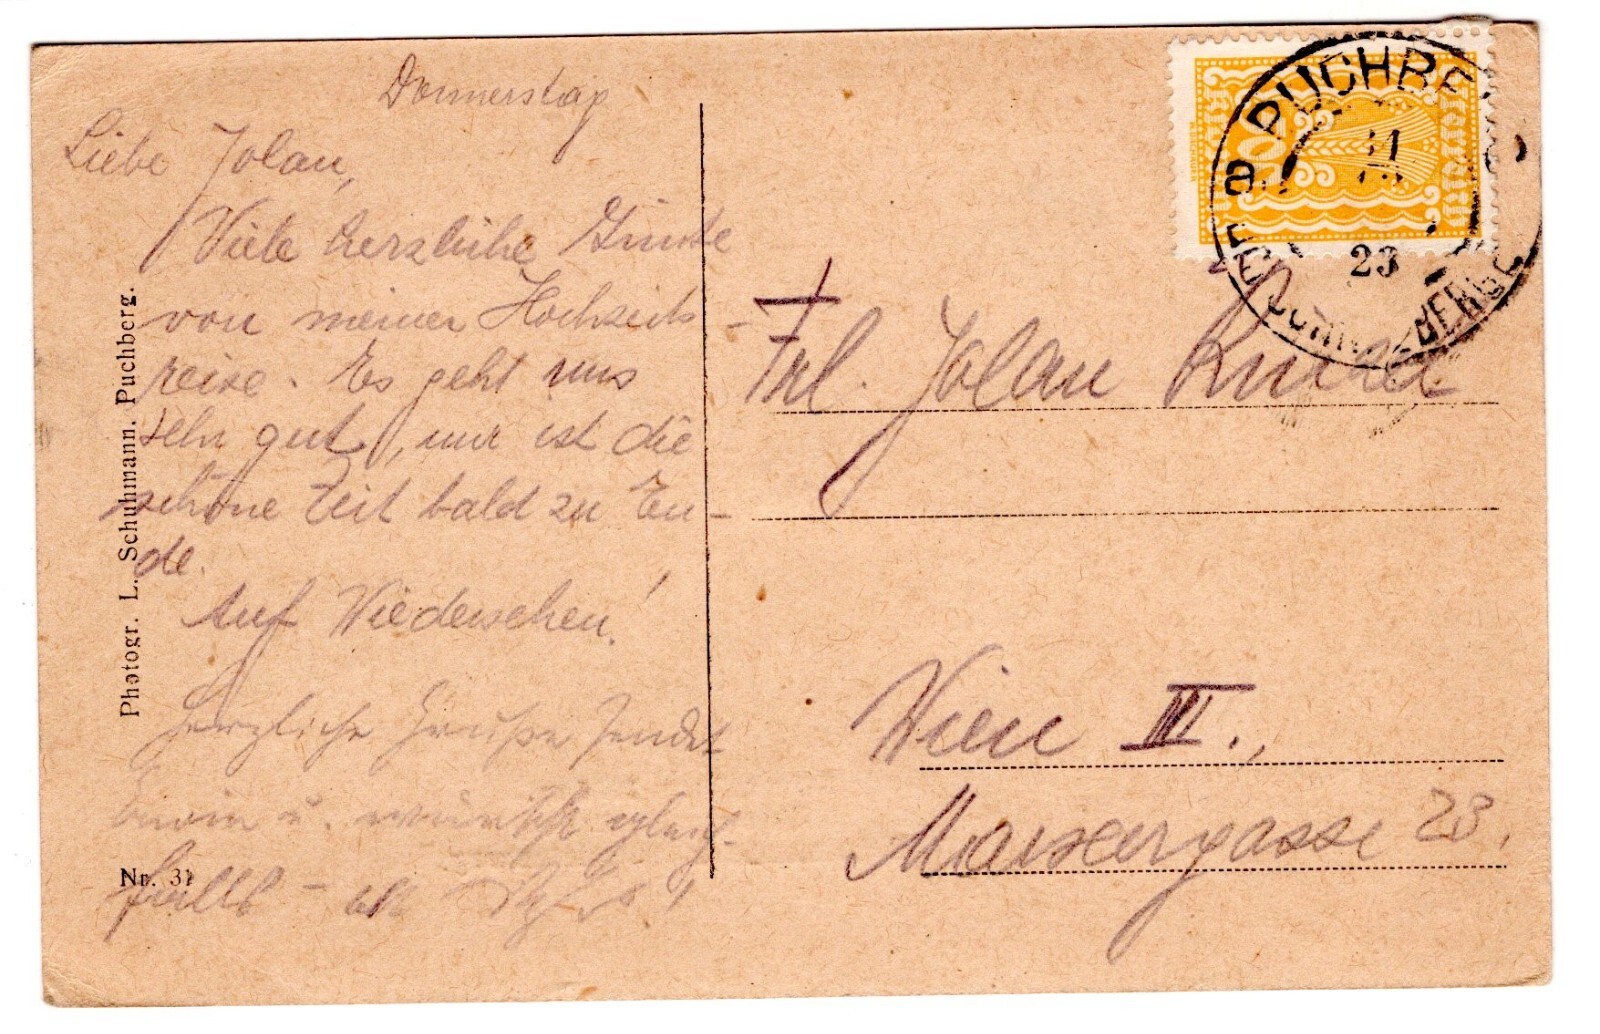 Donnerstag
Liebe Jolan,
Viele herzliche Grüsse
von meiner Hochzeits-
reise. Es geht uns
sehr gut, nur ist die
schöne Zeit bald zu En-
de.
Auf Wiedersehen!
Herzliche Grüße sendet
Erwin u. wünscht gleich-
falls
Photogr. L. Schuhmann. Puchberg.
Nr. 31
PUCHBE
23
Frl. Jolan
Wien III.,
Marxergasse 23.